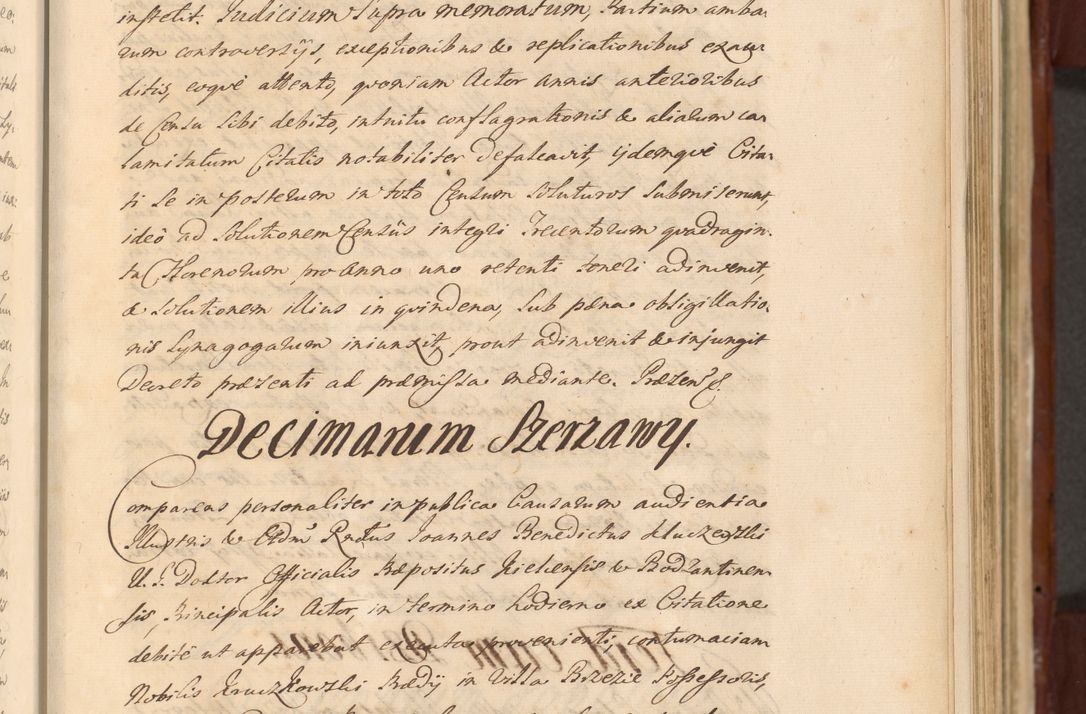 instetit. Judicium Supra memoratum, Partium amba-
rum controversijs, exceptionibus & replicationibus exau-
ditis, eoqvè attento, qvoniam Actor annis anterioribus
de Censu Sibi debito, intuitu conflagrationis & aliarum ca-
lamitatum Citatis notabiliter defalcavit, ijdemqvè Cita-
ti Se in posterum in toto Censum Soluturos Submiserunt,
ideò ad Solutionem Censûs integri Trecentorum qvadragin-
ta Florenorum, pro Anno uno retenti teneri adinvenit,
& Solutionem illius in qvindena, Sub pæna obsigillatio-
nis Synagogarum iniunxit, prout adinvenit & injungit
Decreto præsenti ad præmissa mediante. Præsen. &.
Decimarum Szerzawy.
Comparens personaliter in publica Causarum audientia
Illustris & Rndus Joannes Benedictus
U. J. Doctor Officialis Præpositus Kielcensis & Bodzantinen-
sis, Principalis Actor, in termino hodierno ex Citatione
debitè ut apparebat executa provenienti, contumaciam
Nobilis Kruczkowski Hædij in Villa Brzezie Possessoris,